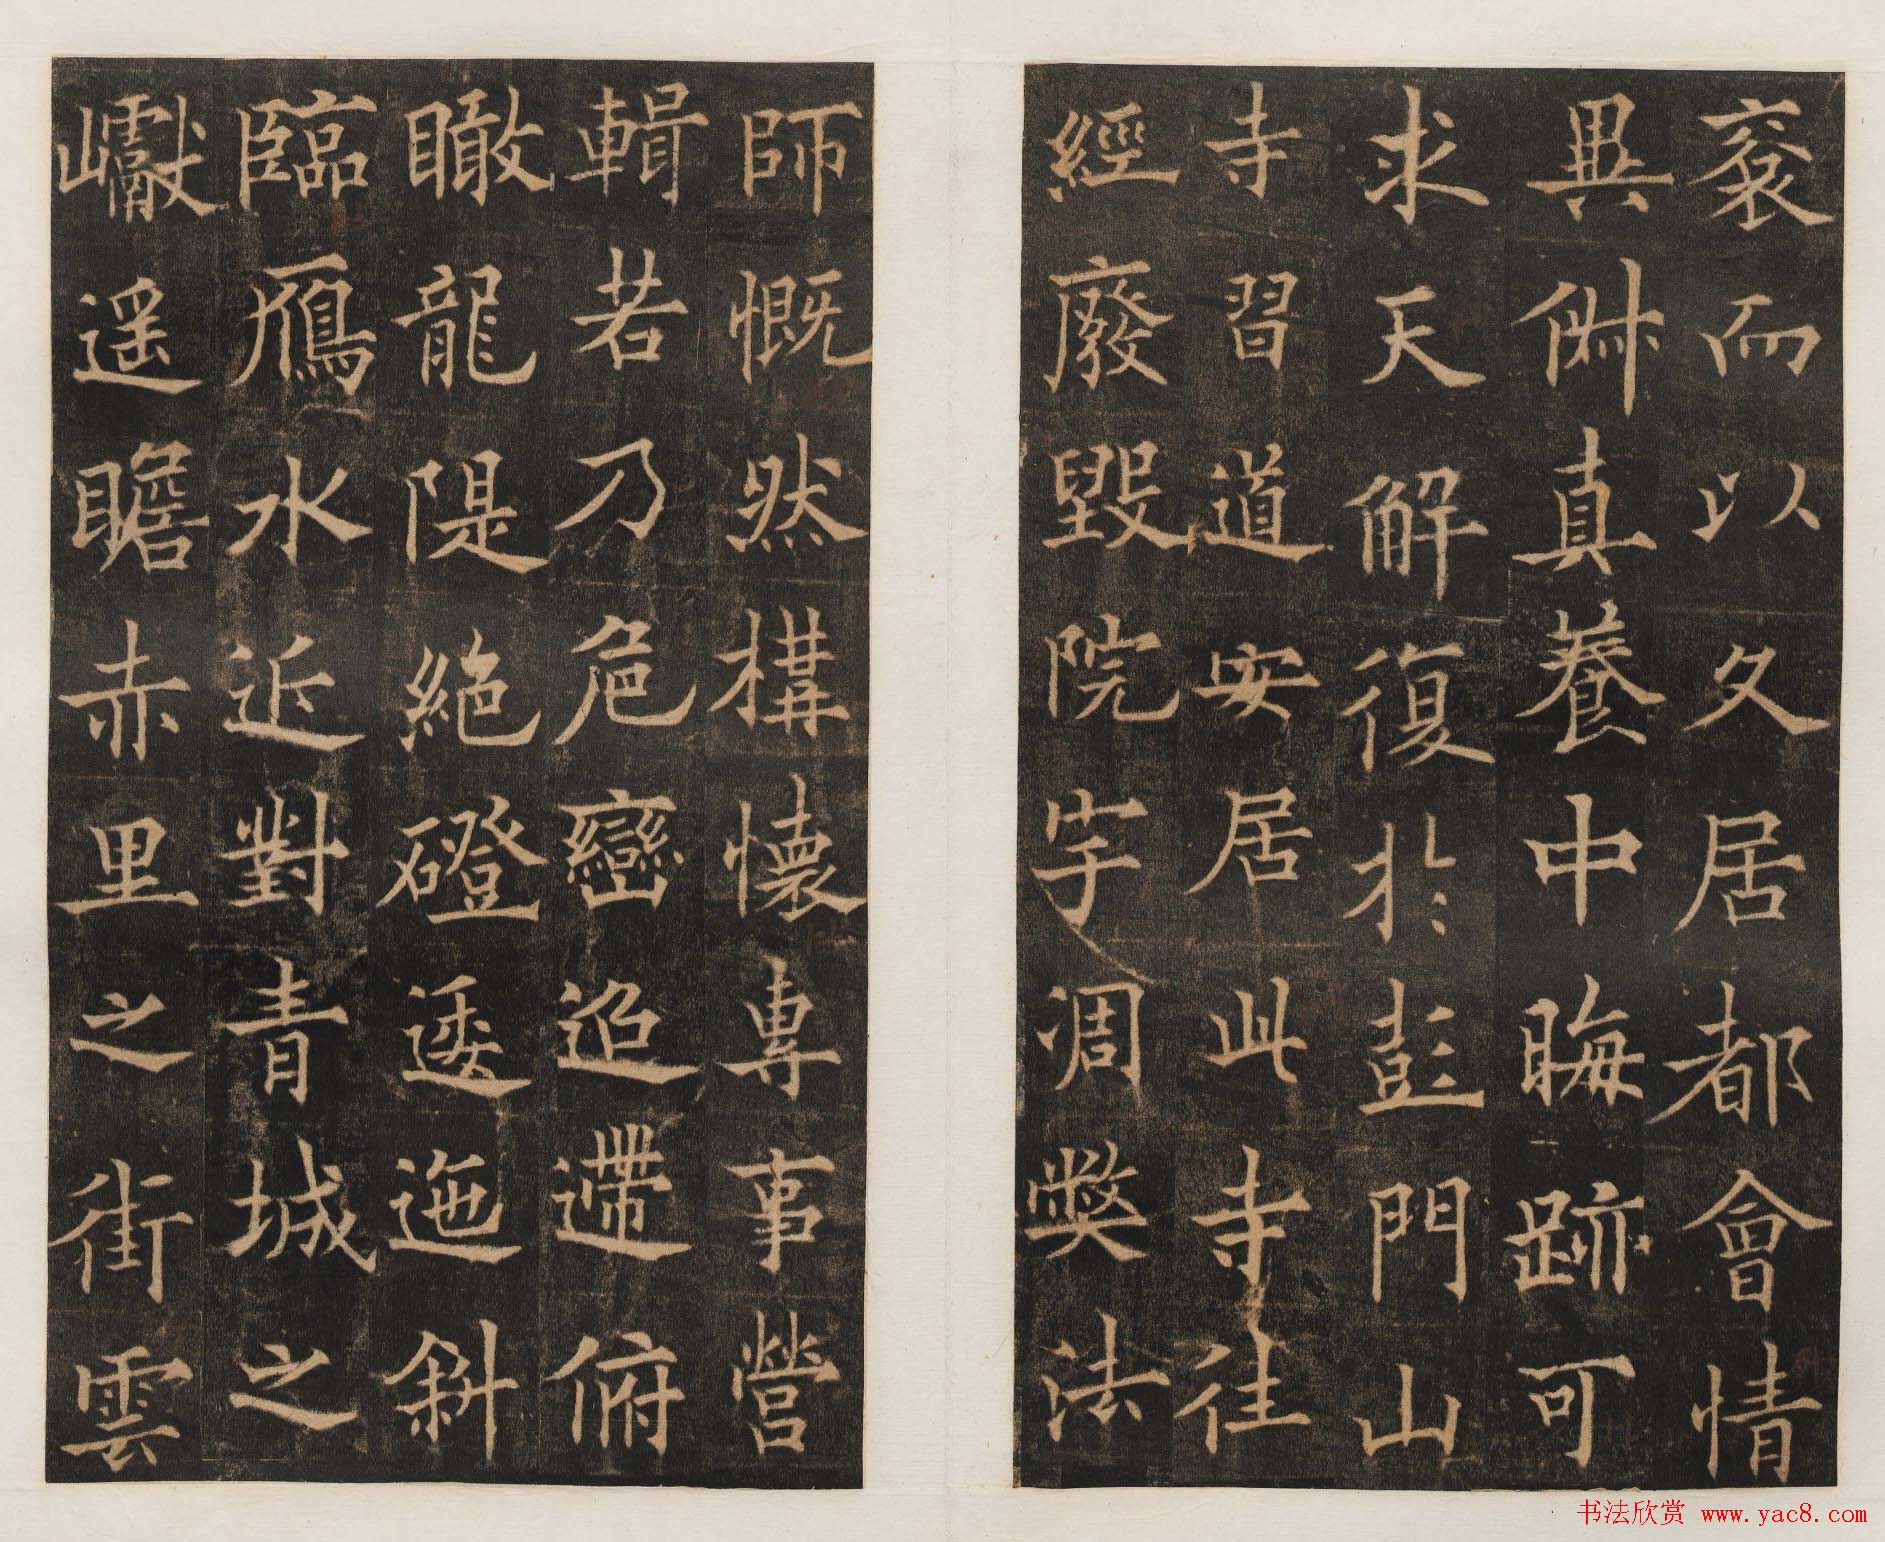 裒而以久居都會情
異俶真養中晦跡可
求天解復於彭門山
寺習道安居此寺往
經廢毀院宇凋弊法
師慨然構懷專事營
輯若乃危巒迢遰俯
瞰龍隄絕磴逶迤斜
臨鴈水近對青城之
巘遥瞻赤里之街雲
书法欣赏 www.yac8.com